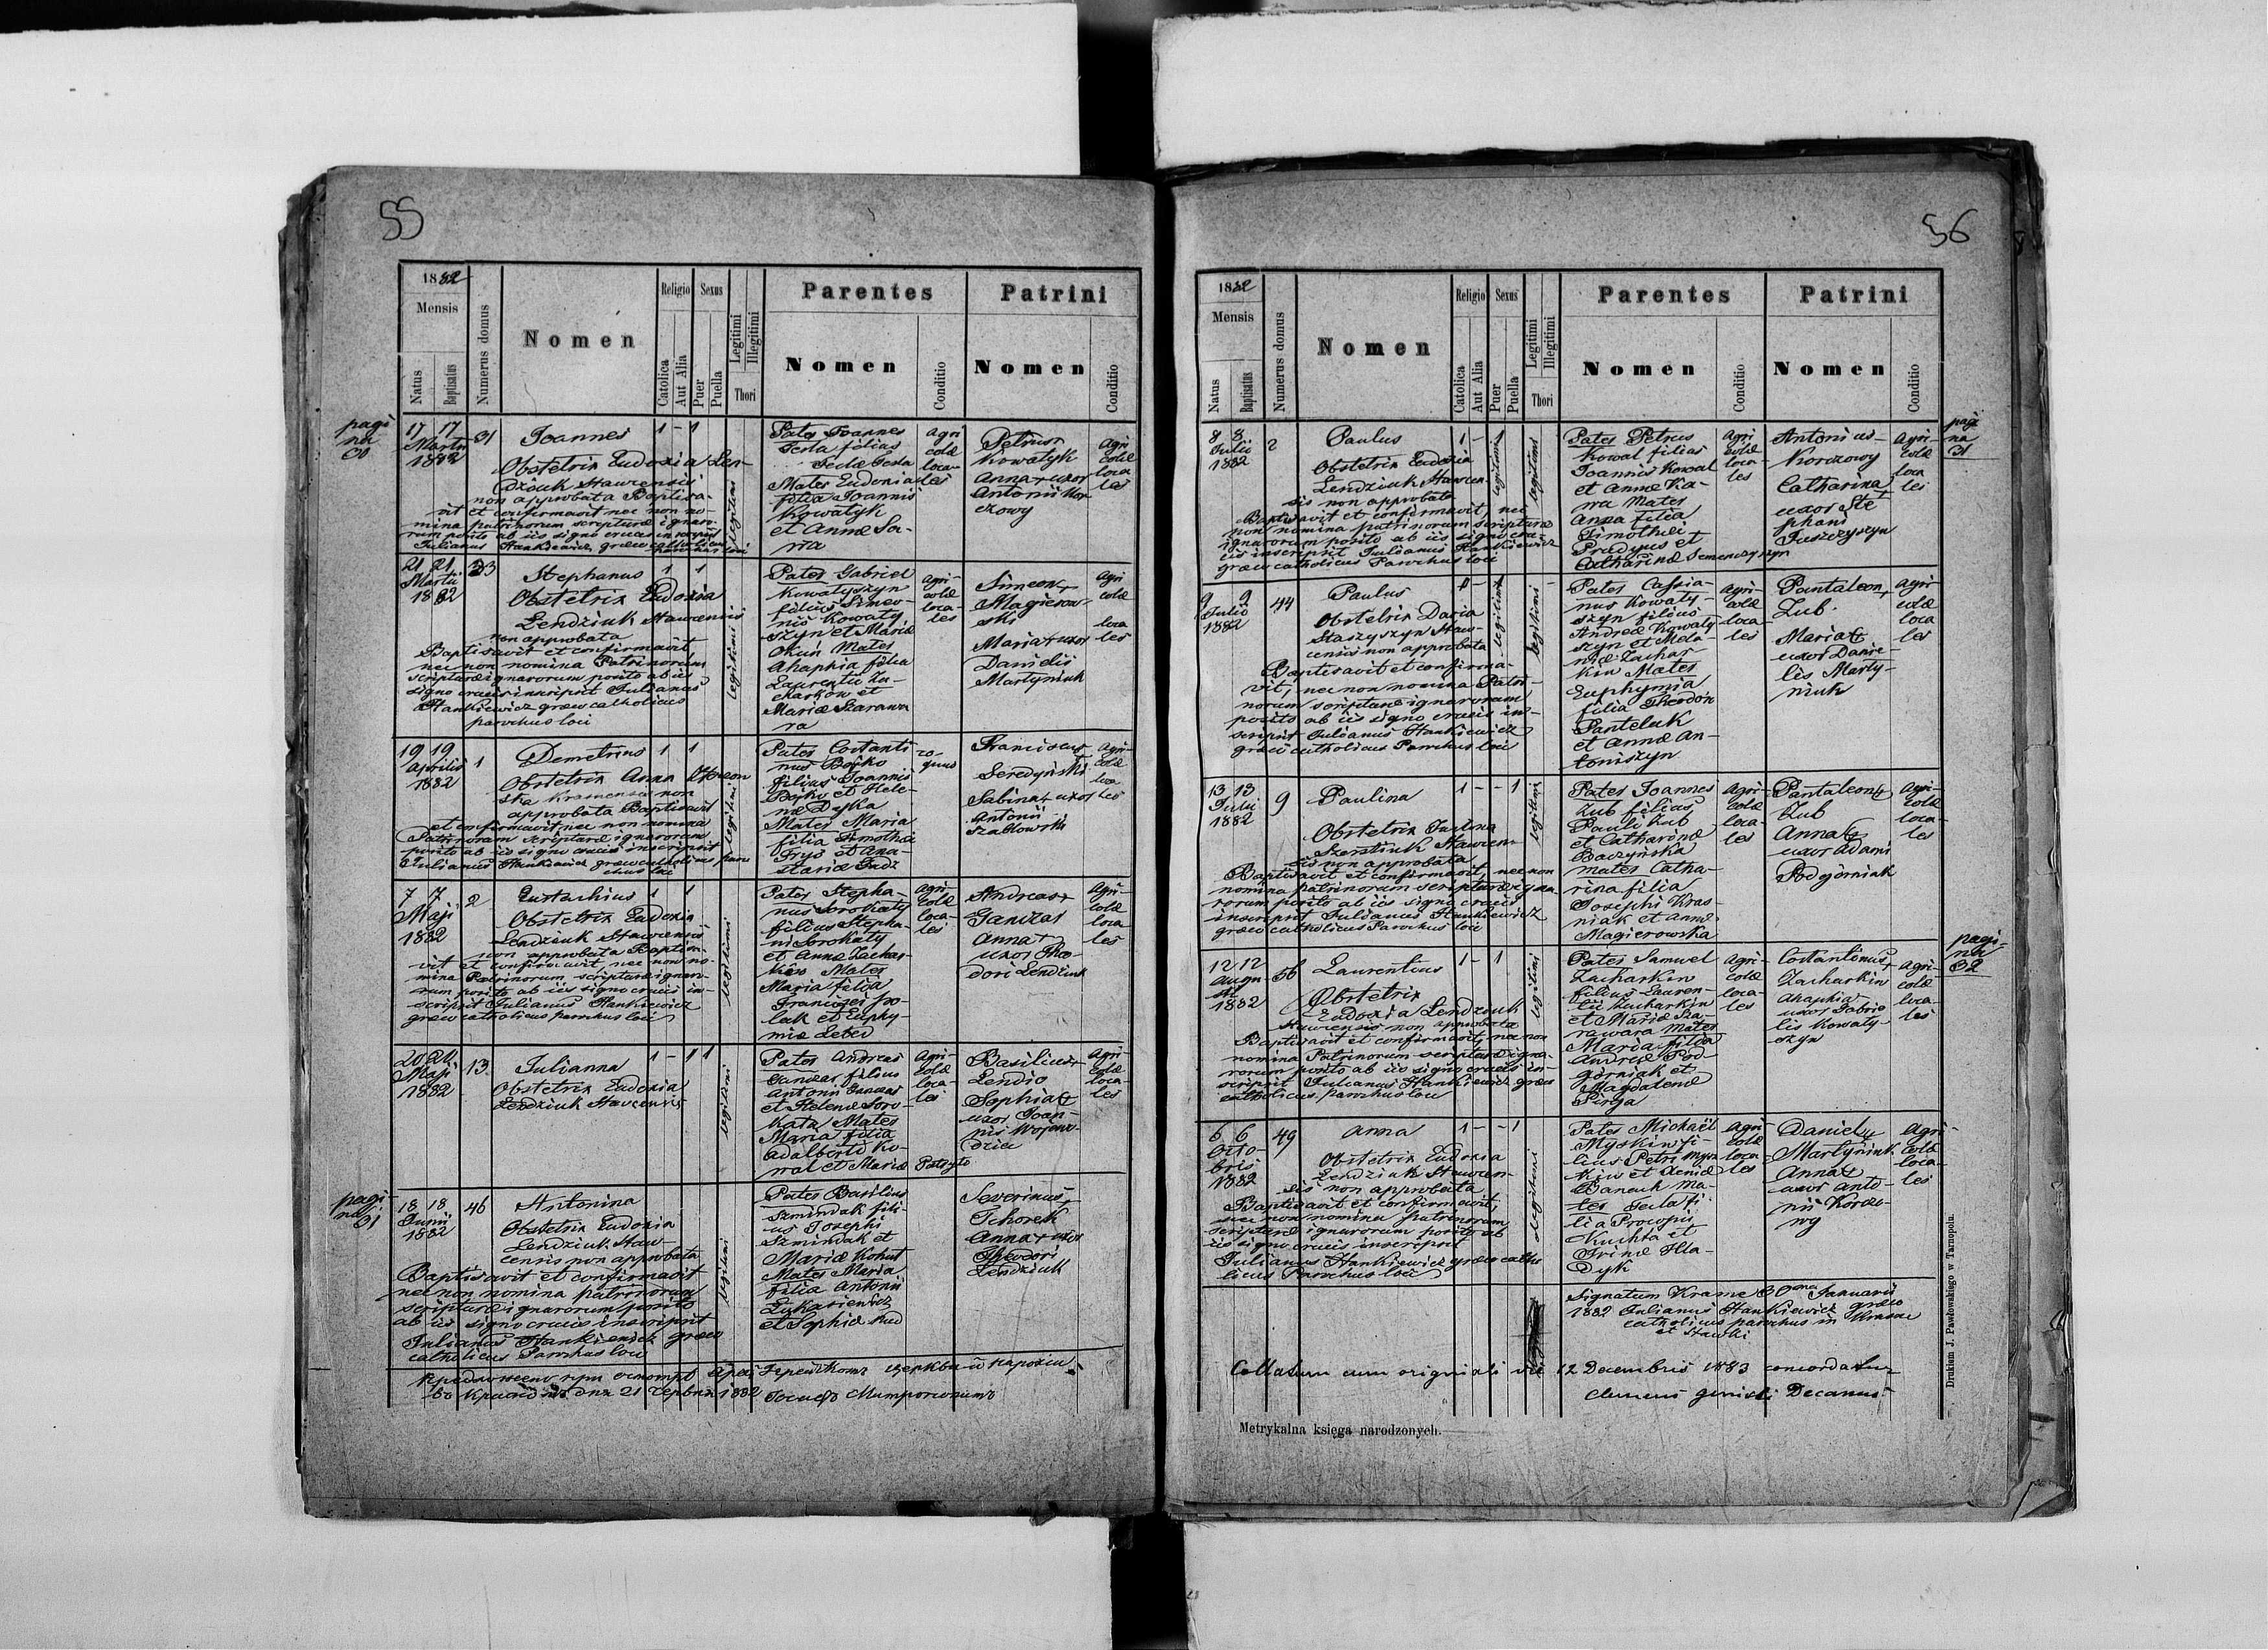 55
1882
Mensis
Natus
Baptisatus
Numerus domus
Nomen
Religio
Catolica
Aut Alia
Sexus
Puer
Puella
Legitimi
Illegitimi
Thori
Parentes
Nomen
Conditio
Patrini
Nomen
Conditio
pagi
na
30
17 17
Martii
1882
31
Joannes
1 - 1
Obstetrix Eudoxia Len-
dziuk Stawcensis
non approbata Baptisa-
vit et confirmavit nec non no-
mina patrinorum scripturæ ignaro-
rum posito ab iis signo crucis inscripsit
Julianus Hankiewicz græco catholicus
parochus loci
legitimi
Pater Joannes
filius
Mater Eudoxia
filia Joannis
Kowatyk
et Annæ
Agri
colæ
loca-
les
Petrus+
Kowatyk
Anna+uxor
Antonii Kor-
czowy
Agri
colæ
loca
les
21 21
Martii
1882
33
Stephanus
1 1
Obstetrix Eudoxia
Lendziuk Stawcensis
non approbata
Baptisavit et confirmavit,
nec non nomina Patrinorum
scripturæ ignarorum posito ab iis
signo crucis inscripsit Julianus
Hankiewicz græco catholicus
parochus loci
legitimi
Pater Gabriel
Kowatyszyn
filius Simeo-
nis Kowaty
szyn et Mariæ
Mater
Ahaphia filia
Laurentii Za-
charków et
Mariæ Szarawa
ra
Agri-
colæ
loca-
les
Simeon+
Magierow-
ski
Maria+uxor
Danielis
Martyniuk
Agri
colæ
loca
les
19 19
Aprilis
1882
1
Demetrius
1 1
Obstetrix Anna
Krasnensis non
approbata Baptisavit
et confirmavit nec non nomina
Patrinorum scripturæ ignarorum
posito ab iis signo crucis inscripsit
Julianus Hankiewicz græco catholicus paro
chus loci
legitimi
Pater Costanti
nus Bojko
filius Joannis
Bojko et Hele-
næ Dyka
Mater Maria
filia Timothei
Frys et Ana-
stasiæ
Franciscus
Seredyński
Sabina+uxor
Antonii
Szablowski
Agri-
colæ
loca
les
7 7
Maji
1882
2
Eustachius
1 1
Obstetrix Eudoxia
Lendziuk Stawcensis
non approbata Baptisa-
vit et confirmavit, nec non no-
mina Patrinorum scripturæ ignaro-
rum posito ab iis signo crucis in-
scripsit Julianus Hankiewicz
græco catholicus parochus loci
legitimi
Pater Stepha-
nus Sorokaty
filius Stepha-
ni Sorokaty
et Annæ Zachar-
kiw Mater
Maria filia
et Euphy-
miæ
Agri-
colæ
loca-
les
Andreas+
Ganczar
Anna+
uxor Theo-
dori Lendziuk
Agri-
colæ
loca
les
Maji
1882
13
Julianna
1 - 1 1
Obstetrix Eudoxia
Lendziuk Stawcensis
legitimi
Pater Andreas
filius
Antonii
et Helenæ Soro-
kata Mater
Maria filia
Adalberti Ko-
wal et Mariæ
Agri-
colæ
loca-
les
Basilius+
Lendio
Sophia+
uxor Joan-
nis Wojewo-
Agri-
colæ
loca-
les
pagi-
na
31
18 18
Junii
1882
46
Antonina
Obstetrix Eudoxia
Lendziuk Staw-
censis non approbata
Baptisavit et confirmavit
nec non nomina patrinorum
scripturæ ignarorum posito
ab iis signo crucis inscripsit
Julianus Hankiewicz græco
catholicus Parochus loci
legitimi
Pater Basilius
Szmindak fili-
us Josephi
Szmindak et
Mariæ Kohut
Mater Maria
filia Antonii
Łukasiewicz
et Sophiæ
Severinus+
Tchorek
Anna+uxor
Theodori
Lendziuk
1882
56
1882
Mensis
Natus
Baptisatus
Numerus domus
Nomen
Religio
Catolica
Aut Alia
Sexus
Puer
Puella
Legitimi
Illegitimi
Thori
Parentes
Nomen
Conditio
Patrini
Nomen
Conditio
pagi
na
31
8 8
Julii
1882
2
Paulus
1 - 1
Obstetrix Eudoxia
Lendziuk Stawcen-
sis non approbata
Baptisavit et confirmavit, nec
non nomina patrinorum scripturæ
ignarorum posito ab iis signo cru-
cis inscripsit Julianus Hankiewicz
græco catholicus Parochus loci
legitimi
legitimi
Pater Petrus
Kowal filius
Joannis Kowal
et Annæ Ka-
ra Mater
Anna filia
Timothei
et
Catharinæ Semenczyszyn
Agri
colæ
loca-
les
Antonius-
Korczowy
Catharina
uxor Ste
phani
Juszczyszyn
Agri-
colæ
loca
les
9 9
Julii
1882
44
Paulus
Obstetrix Daria
Staszyszyn Staw-
censis non approbata
Baptisavit et confirma-
vit, nec non nomina Patri-
norum scripturæ ignarorum
posito ab iis signo crucis in-
scripsit Julianus Hankiewicz
græco catholicus Parochus loci
legitimi
legitimi
Pater Cassia-
nus Kowaty-
szyn filius
Andreæ Kowaty-
szyn et Mela-
niæ Zachar
kiw Mater
Euphymia
filia Theodori
Panteluk
et Annæ An-
toniszyn
Agri-
colæ
loca-
les
Pantaleon+
Zub.
Maria+
uxor Danie-
lis Marty-
niuk
Agri-
colæ
loca
les
13 13
Julii
1882
9
Paulina
1 - - 1
Obstetrix Justina
Stawcen-
sis non approbata
Baptisavit et confirmavit, nec non
nomina patrinorum scripturæ igna-
rorum posito ab iis signo crucis
inscripsit Julianus Hankiewicz
græco catholicus Parochus loci
legitimi
Pater Joannes
Zub filius
Pauli Zub
et Catharinæ
Baczyńska
mater Catha-
rina filia
Josephi Kras-
niak et Annæ
Magierowska
Agri-
colæ
loca-
les
Pantaleon+
Zub
Anna+
uxor Adami
Podgórniak
Agri-
colæ
loca-
les
pagi-
na
32
12 12
Augu-
sti
1882
56
Laurentius
1 - 1
Obstetrix
Eudoxia Lendziuk
Stawcensis non approbata
Baptisavit et confirmavit, nec non
nomina Patrinorum scripturæ igna-
rorum posito ab iis signo crucis in-
scripsit Julianus Hankiewicz græco
catholicus parochus loci
legitimi
Pater Samuel
Zacharkiw
filius Lauren-
tii Zacharkiw
et Mariæ Sza-
rawara Mater
Maria filia
Andreæ Pod-
górniak et
Magdalenæ
Pirga
Agri-
colæ
loca-
les
Costantinus+
Zacharkiw
Ahaphia
uxor Gabrie
lis Kowaty-
szyn
Agri-
colæ
loca-
les
6 6
Octo-
bris
1882
49
Anna
1 - - 1
Obstetrix Eudoxia
Lendziuk Stawcen-
sis non approbata
Baptisavit et confirmavit,
nec non nomina patrinorum
scripturæ ignarorum posito ab
iis signo crucis inscripsit
Julianus Hankiewicz græco catho
licus Parochus loci
legitimi
Pater Michaël
Myskiw fi-
lius Petri Mys-
kiw et Xeniæ
Banach Ma-
ter Tecla fi-
lia Procopii
Kuchta et
Irinæ Hla-
dyk
Agri
colæ
loca-
les
Daniel+
Martyniuk
Anna+
uxor Anto-
nii Korczo-
wy
Agri-
colæ
loca-
les
Signatum Krasne 30ma Januarii
1882 Julianus Hankiewicz græco
catholicus parochus in Krasne
et Stawki
Collatum cum originali die 12 Decembris 1883 concordatur
Clemens Decanus
Metrykalna księga narodzonych.
Drukiem J. Pawłowskiego w Tarnopolu.